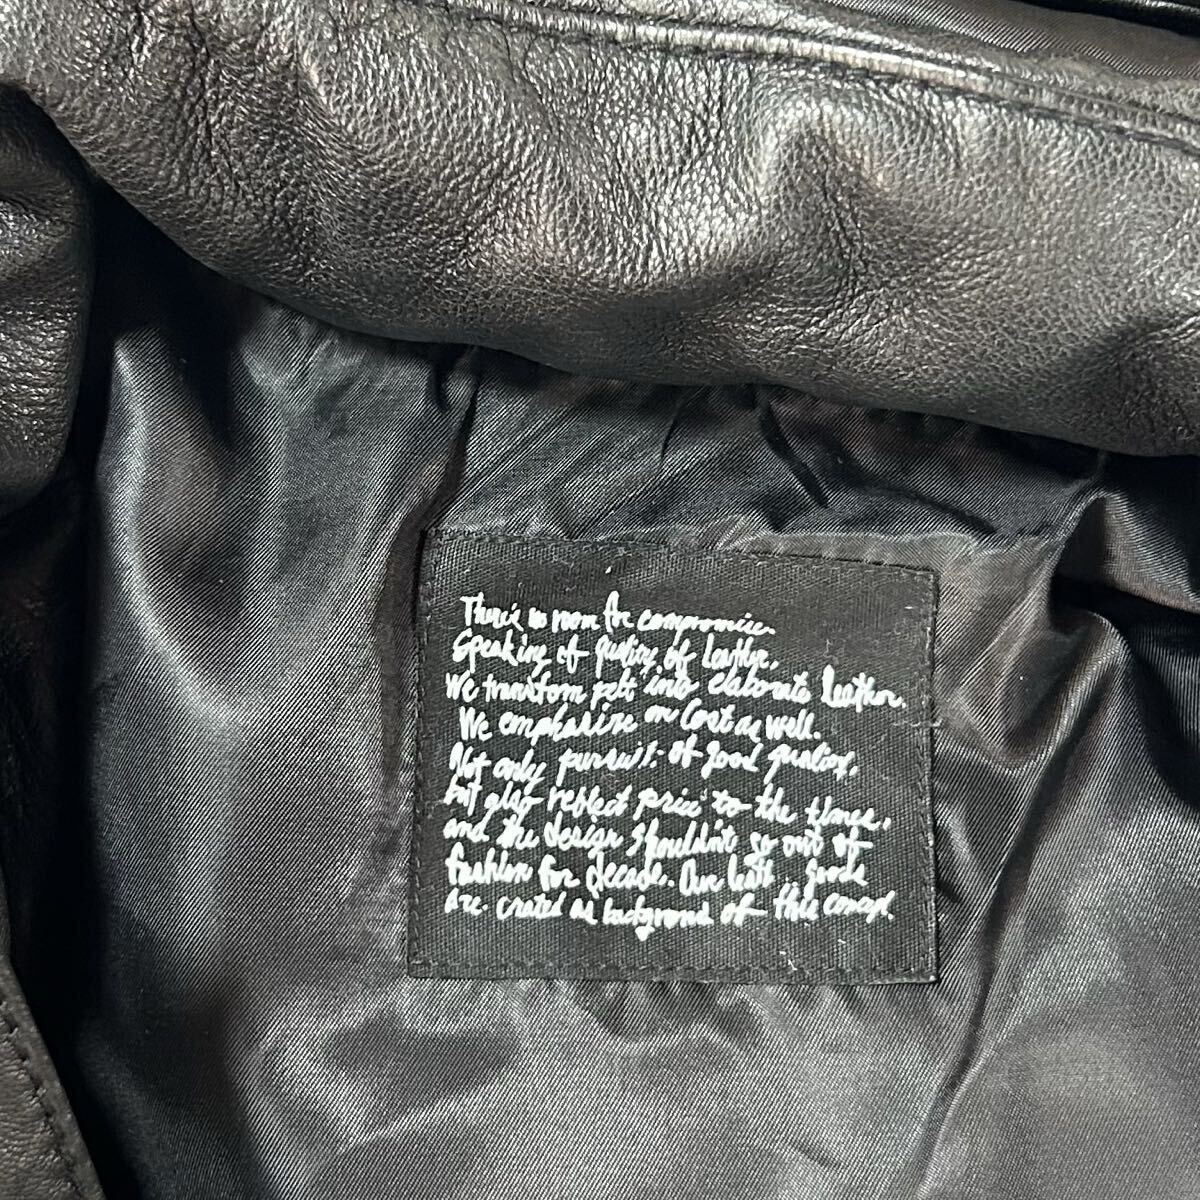 There's no room for compromise.
Speaking of quality of leather,
We transform pelt into elaborate leather.
We emphasize on Cost as well.
Not only pursuit of good quality,
but also reflect price to the times,
and the design shouldn't go out of
fashion for decade. Our leath goods
are crated as background of this concept.